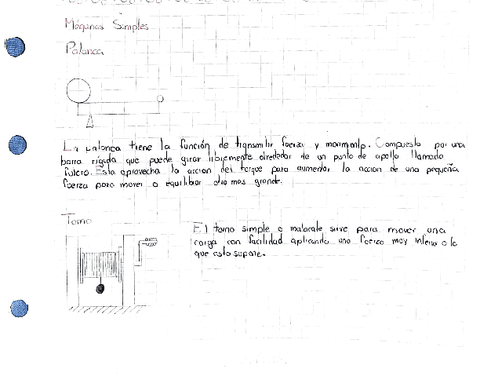 Máquinas Simples
Palanca
La palanca tiene la función de transmitir fuerza y movimiento. Compuesto por una
barra rígida que puede girar libremente alrededor de un punto de apollo llamado
fulcro. Esta aprovecha la accion del torque para aumentar la accion de una pequeña
fuerza para mover o equilibrar mas grande.
Torno
El torno simple o malacate sirve para mover una
carga con facilidad aplicando una fuerza muy inferior a la
que esta supone.